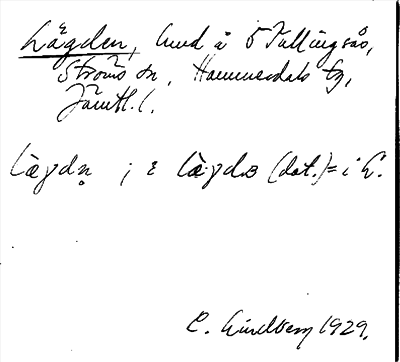 Lågden, lund å Ö Tullingsås,
Ströms sn, Hammerdals tg,
Jämtl. l.
lægdn̥ ; i læ·gdɜ (dat.) = i L.
C. Lindberg 1929.